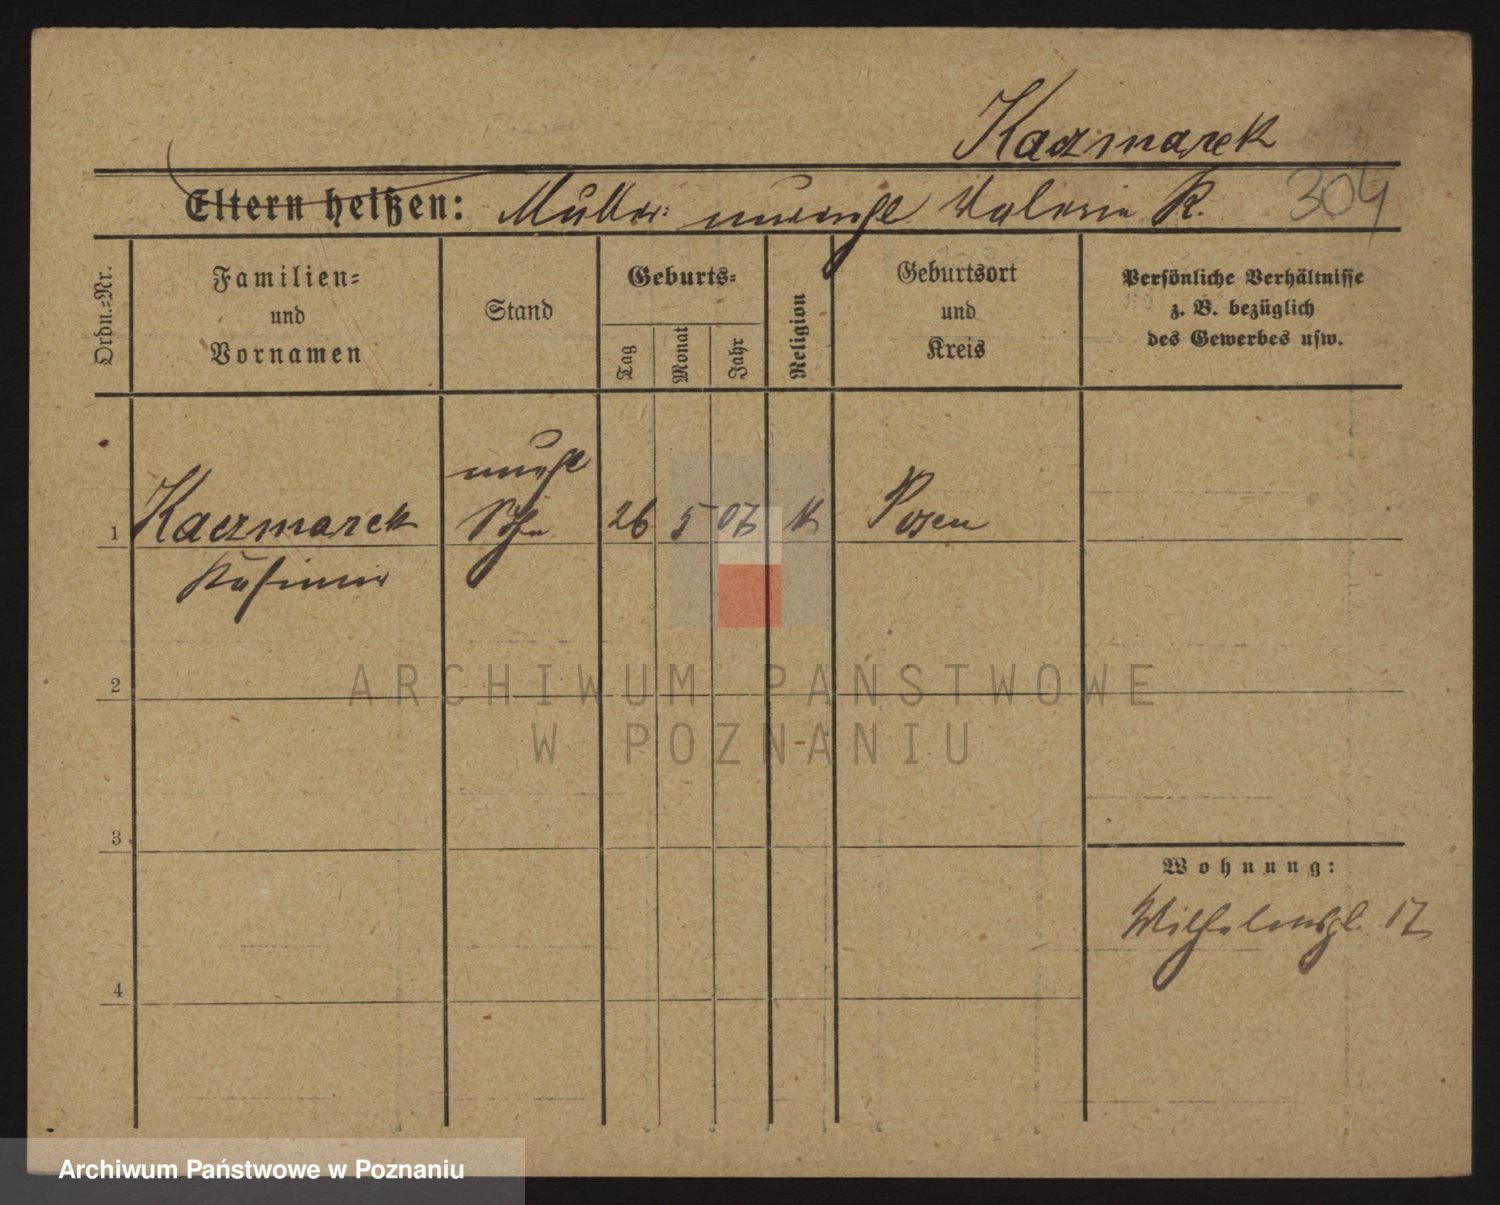 Kaczmarek
Eltern heißen: Mutter: unverehl Valerie K. 304
Ordn.=Nr.
Familien=
und
Vornamen
Stand
Geburts=
Tag
Monat
Jahr
Religion
Geburtsort
und
Kreis
Persönliche Verhältnisse
z. B. bezüglich
des Gewerbes usw.
unehl
1 Kaczmarek Sohn 26 5 07 K Posen
Kasimir
2
ARCHIWUM PAŃSTWOWE
W POZNANIU
3
Wohnung:
Wilhelmspl. 17
4
Archiwum Państwowe w Poznaniu